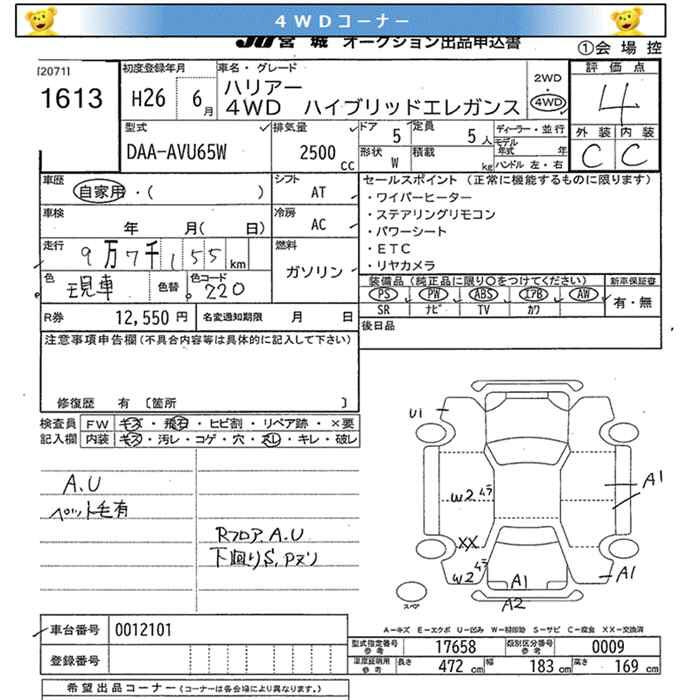 4WDコーナー
JU宮城 オークション出品申込書
①会場控
[2071]
1613
初度登録年月
H26 6月
車名・グレード
ハリアー
4WD ハイブリッドエレガンス
2WD
・
4WD
評価点
4
外装 内装
C C
型式
DAA-AVU65W
排気量
2500 CC
ドア 5
定員 5人
形状 W
積載 kg
ディーラー・並行
モデル年式 年
ハンドル 左・右
車歴
自家用・( )
シフト
AT
車検
年 月( 日)
冷房
AC
走行
9万7千155km
燃料
ガソリン
色
現車
色替
色コード
220
R券 12,550円
名変通知期限 月 日
セールスポイント(正常に機能するものに限ります)
・ワイパーヒーター
・ステアリングリモコン
・パワーシート
・ETC
・リヤカメラ
装備品(純正品に限り○をつけてください)
新車保証書
PS PW ABS エアB AW
有・無
SR ナビ TV カワ
後日品
注意事項申告欄(不具合内容等は具体的に記入して下さい)
修復歴 有〔箇所 〕
検査員記入欄
FW キズ・飛石・ヒビ割・リペア跡・×要
内装 キズ・汚レ・コゲ・穴・スレ・キレ・破レ
A.U
ペット毛有
Rフロア A.U
下廻りS, Pズリ
U1
W2 ムラ
XX
W2 ムラ
A1
A1
A1
A2
スペア
A-キズ E-エクボ U-凹み W-補修跡 S-サビ C-腐食 XX-交換済
車台番号 0012101
登録番号
型式指定番号 参考 17658
類別区分番号 参考 0009
車庫証明用 参考 長さ 472 cm 幅 183 cm 高さ 169 cm
希望出品コーナー(コーナーは各会場により異なります。)